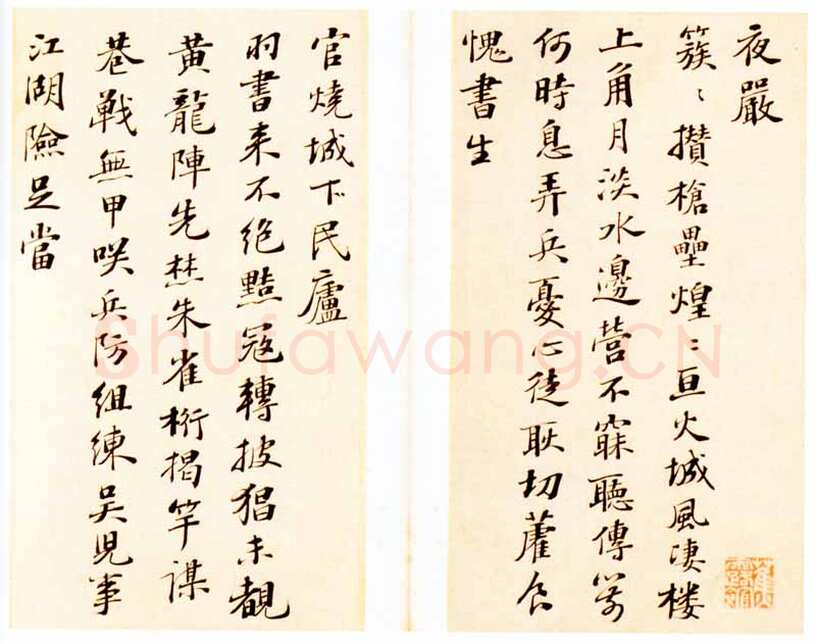 夜嚴
簇〻攢槍壘煌〻亘火城風淒楼
上角月淡水邊營不寐聽傳箭
何時息弄兵憂心徒耿切藿食
愧書生
官燒城下民廬
羽書来不絕黠冦轉披猖未覩
黃龍陣先焚朱雀桁揭竿謀
巷戰無甲咲兵防組練吳兒事
江湖險足當
Shufawang.CN